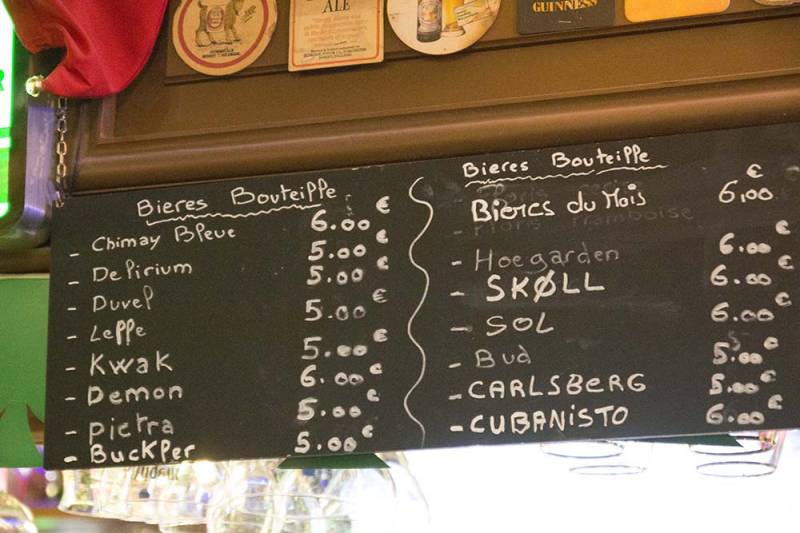 ALE
GUINNESS
Bieres Bouteille
- Chimay Bleue 6.00 €
- Delirium 5.00 €
- Duvel 5.00 €
- Leffe 5.00 €
- Kwak 5.00 €
- Demon 6.00 €
- Pietra 5.00 €
- Buckler 5.00 €
Bieres Bouteille
Bieres du Mois 6,00 €
- Hoegarden 6.00 €
- SKØLL 6.00 €
- SOL 6.00 €
- Bud 5.00 €
- CARLSBERG 5.00 €
- CUBANISTO 6.00 €